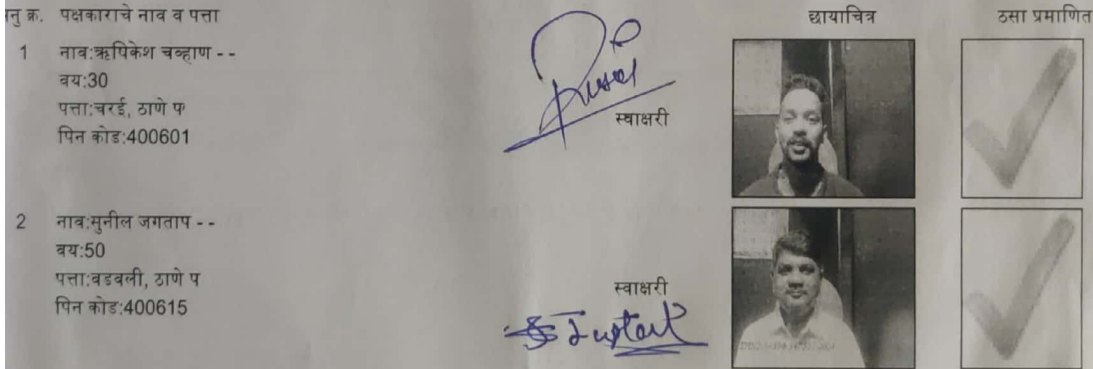 नु क्र. पक्षकाराचे नाव व पत्ता छायाचित्र ठसा प्रमाणित
1 नाव:ऋषिकेश चव्हाण - -
वय:30
पत्ता:चरई, ठाणे प
पिन कोड:400601
स्वाक्षरी
2 नाव:सुनील जगताप - -
वय:50
पत्ता:वडवली, ठाणे प
पिन कोड:400615
स्वाक्षरी